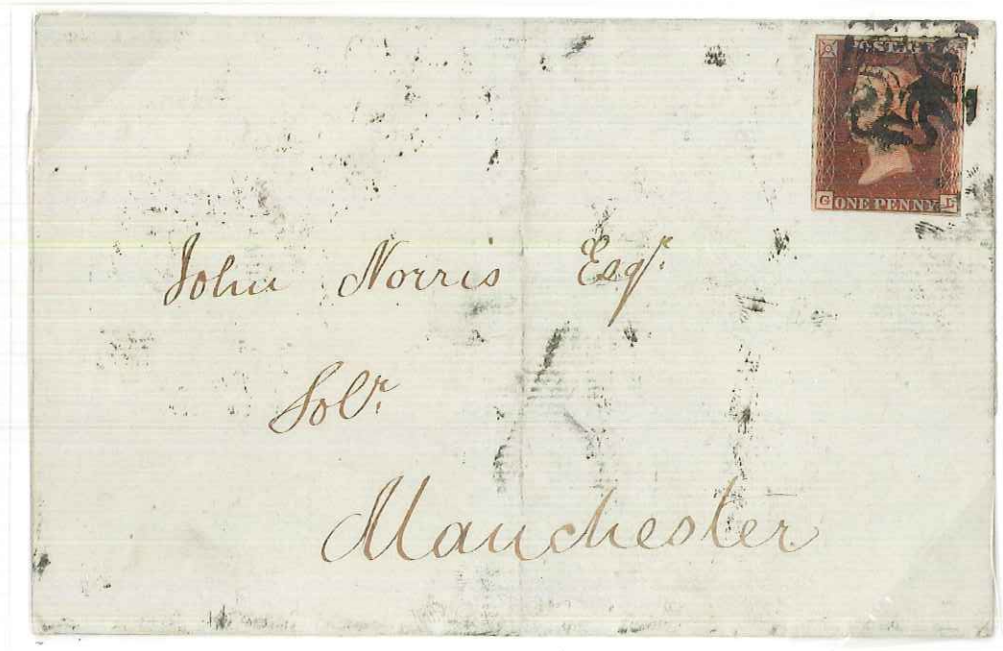 POSTAGE
G ONE PENNY L
John Norris Esqr.
Solr.
Manchester